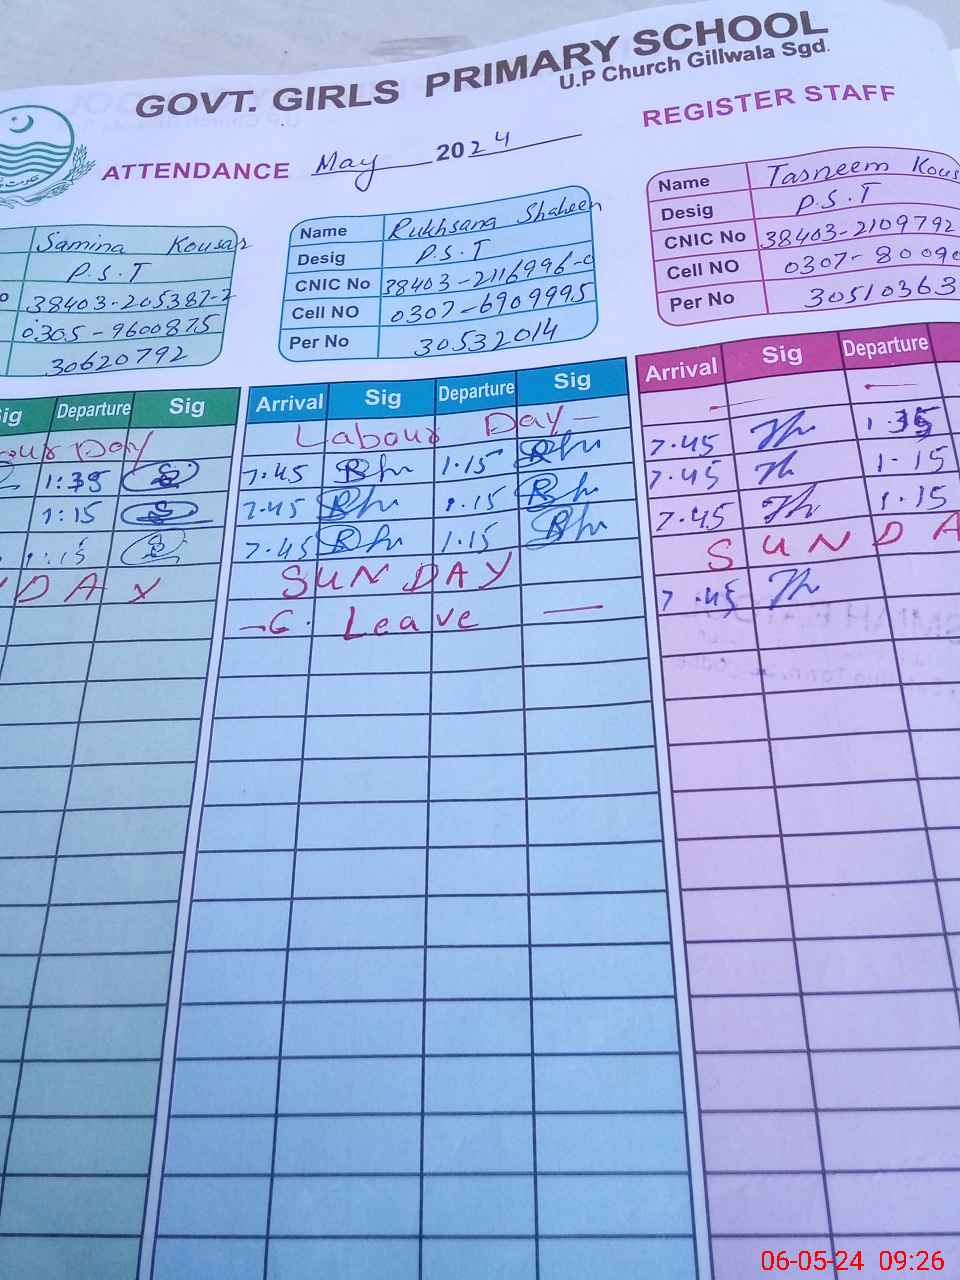 GOVT. GIRLS PRIMARY SCHOOL
U.P Church Gillwala Sgd.
ATTENDANCE May 2024 REGISTER STAFF
Samina Kousar
P.S.T
38403-205387-2
0305-9600875
30620792
Name Rukhsana Shaheen
Desig P.S.T
CNIC No 38403-2116996-0
Cell NO 0307-6909995
Per No 30532014
Name Tasneem Kous
Desig P.S.T
CNIC No 38403-2109792
Cell NO 0307-8009
Per No 30510363
Sig Departure Sig
our Day
1:35
1:15
1:15
DAY
Arrival Sig Departure Sig
Labour Day —
7.45 1.15
7.45 1.15
7.45 1.15
SUNDAY
Leave —
Arrival Sig Departure
7.45 1.35
7.45 1.15
7.45 1.15
SUNDA
7.45
06-05-24 09:26